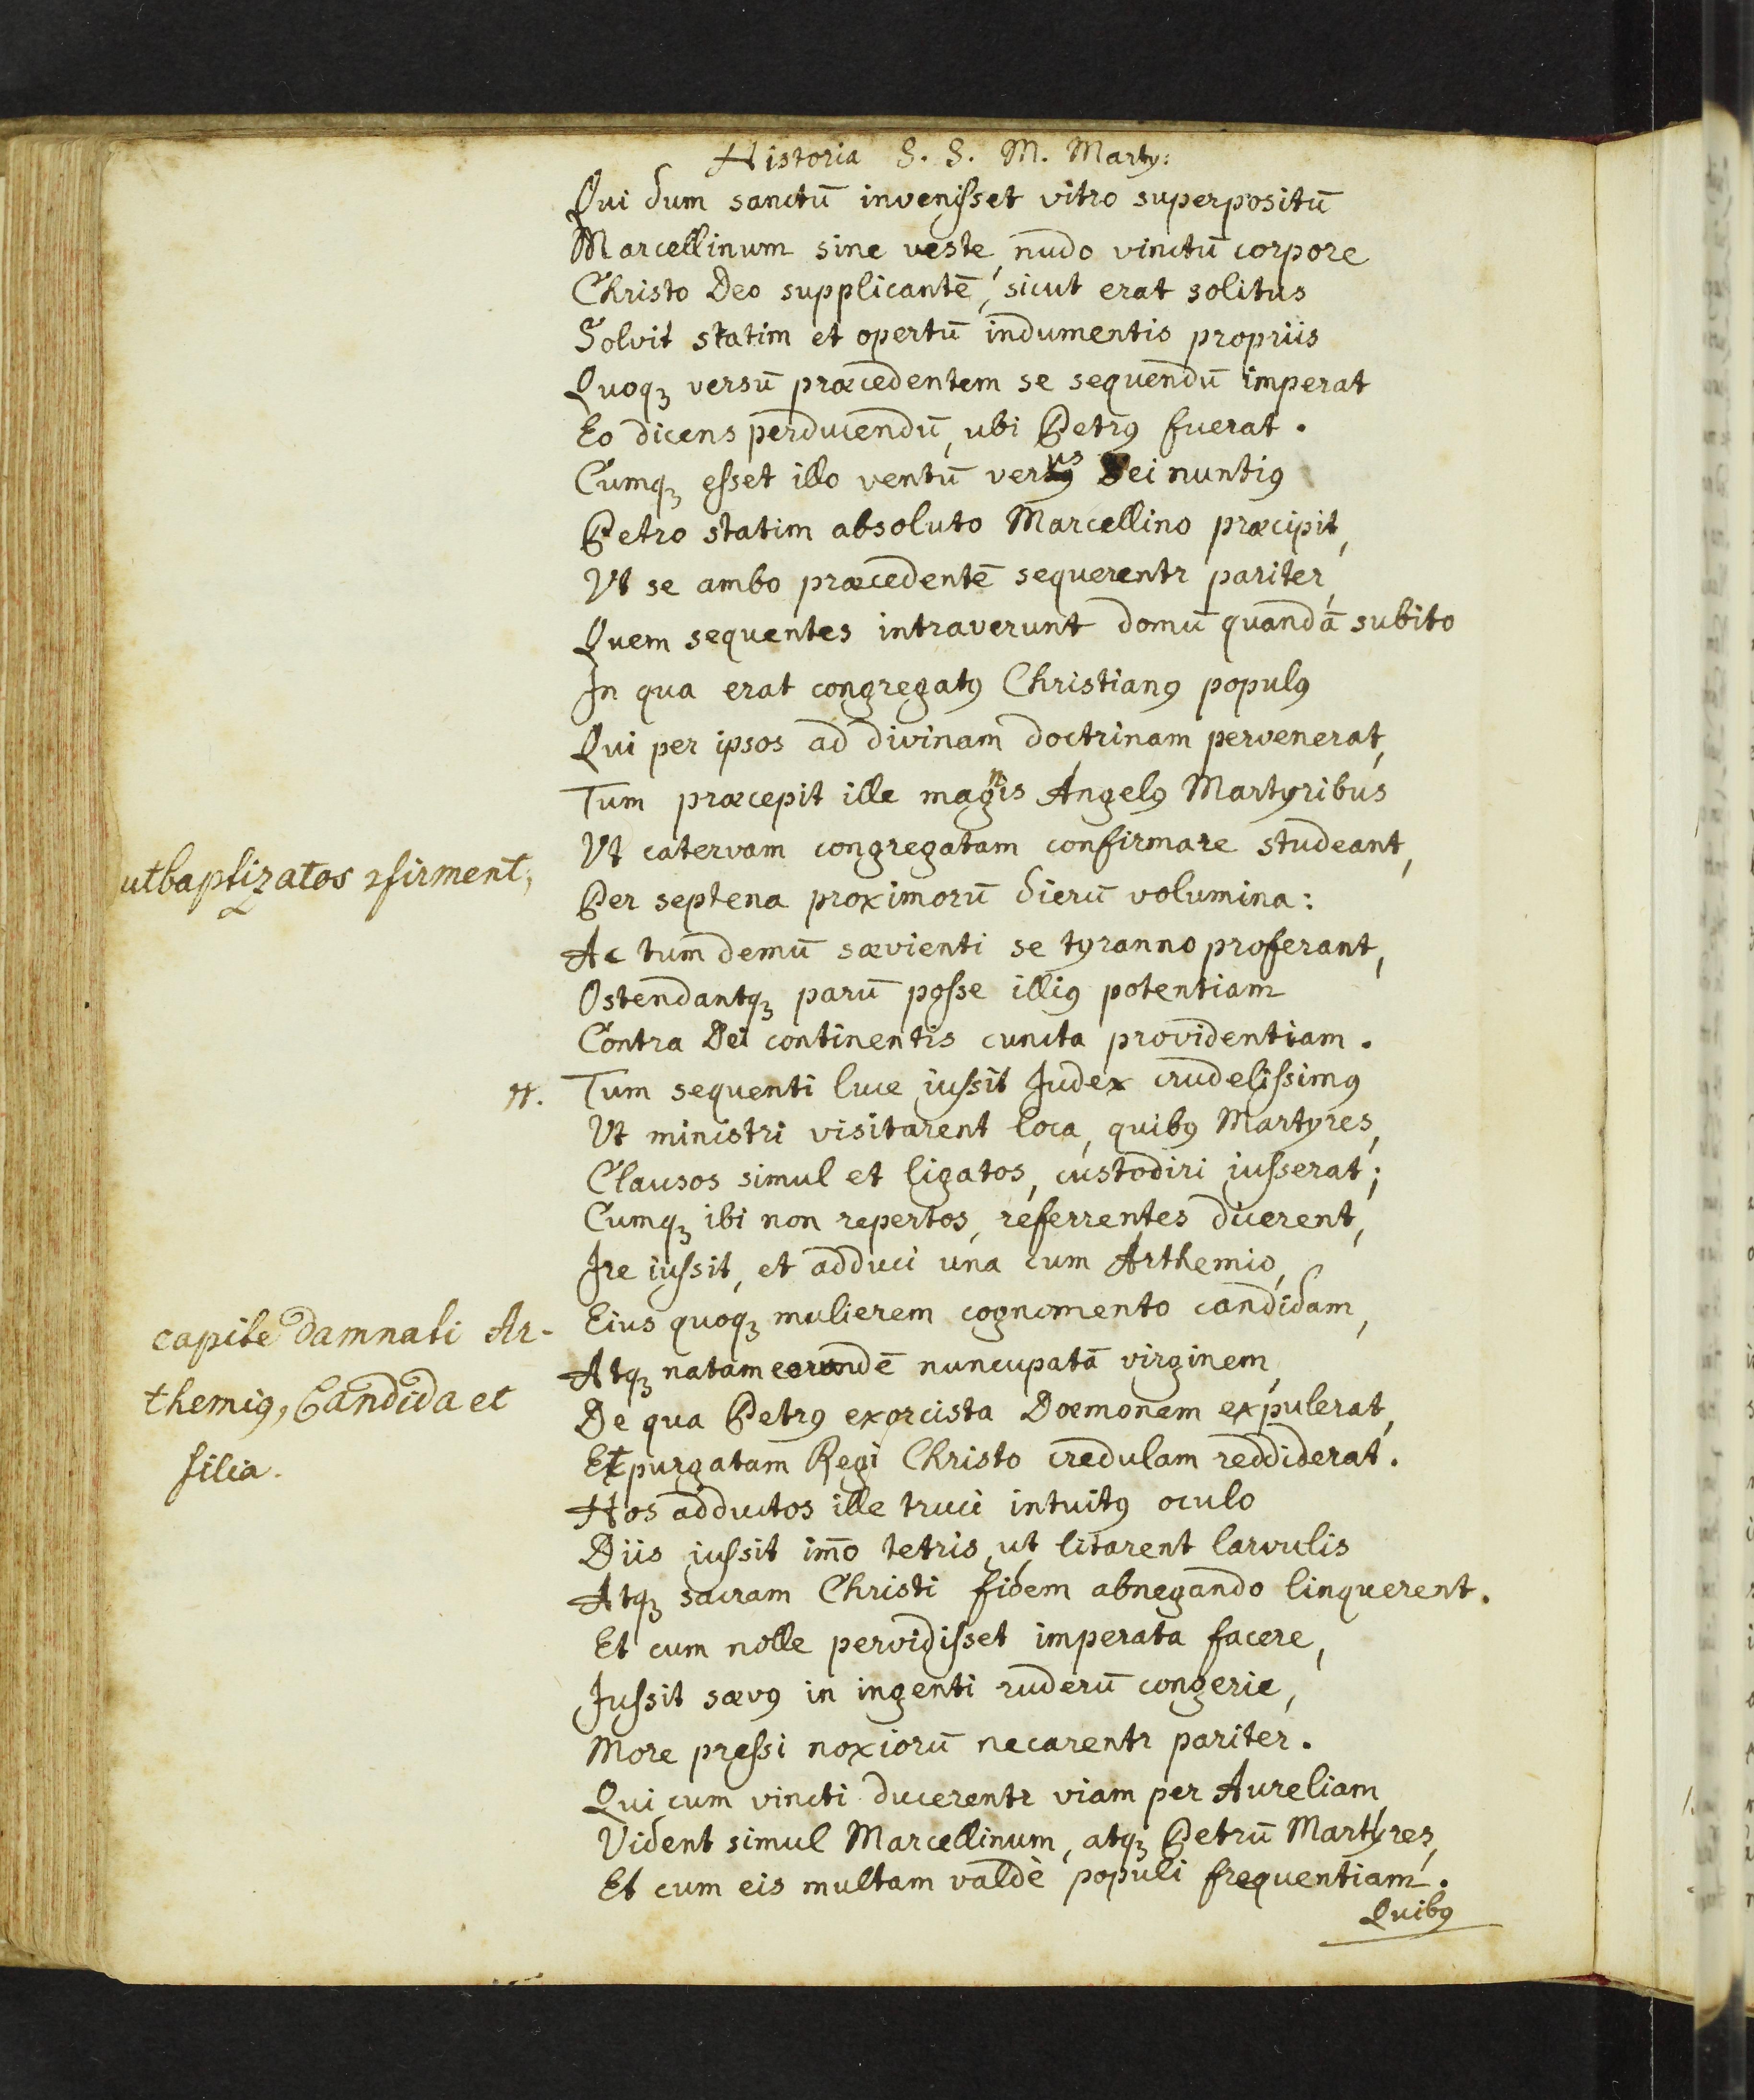 Historia S. S. M. Marty:
Qui dum sanctū invenisset vitro superpositū
Marcellinum sine veste, nudo vinctū corpore
Christo Deo supplicantē, sicut erat solitus
Solvit statim et opertū indumentis propriis
Quoqꝫ versū præcedentem se sequendū imperat
Eo dicens perducendū, ubi Petrꝰ fuerat.
Cumqꝫ esset illo ventū verus Dei nuntiꝰ
Petro statim absoluto Marcellino præcipit,
Vt se ambo præcedentē sequerentr pariter,
Quem sequentes intraverunt domū quandā subito
In qua erat congregatꝰ Christianꝰ populꝰ
Qui per ipsos ad divinam doctrinam pervenerat,
Tum præcepit ille magnis Angelꝰ Martyribus
Vt catervam congregatam confirmare studeant,
ut baptizatos ꝯfirment;
Per septena proximorū dierū volumina:
Ac tum demū sævienti se tyranno proferant,
Ostendantqꝫ parū posse illiꝰ potentiam
Contra Dei continentis cuncta providentiam.
Tum sequenti luce iussit Iudex crudelissimꝰ
Vt ministri visitarent loca, quibꝰ Martyres,
Clausos simul et ligatos, custodiri iusserat;
Cumqꝫ ibi non repertos, referrentes dicerent,
Ire iussit, et adduci una cum Arthemio,
Eius quoqꝫ mulierem cognomento candidam,
capite damnati Ar-
themiꝰ, Candida et
filia.
Atqꝫ natam eorundē nuncupatā virginem,
De qua Petrꝰ exorcista Dæmonem expulerat,
Et purgatam Regi Christo credulam reddiderat.
Hos adductos ille truci intuitꝰ oculo
Diis iussit im̄o tetris, ut litarent larvulis
Atqꝫ sacram Christi fidem abnegando linquerent.
Et cum nolle pervidisset imperata facere,
Iussit sævꝰ in ingenti ruderū congerie,
More pressi noxiorū necarentr pariter.
Qui cum vincti ducerentr viam per Aureliam
Vident simul Marcellinum, atqꝫ Petrū Martyres,
Et cum eis multam valdè populi frequentiam.
Quibꝰ